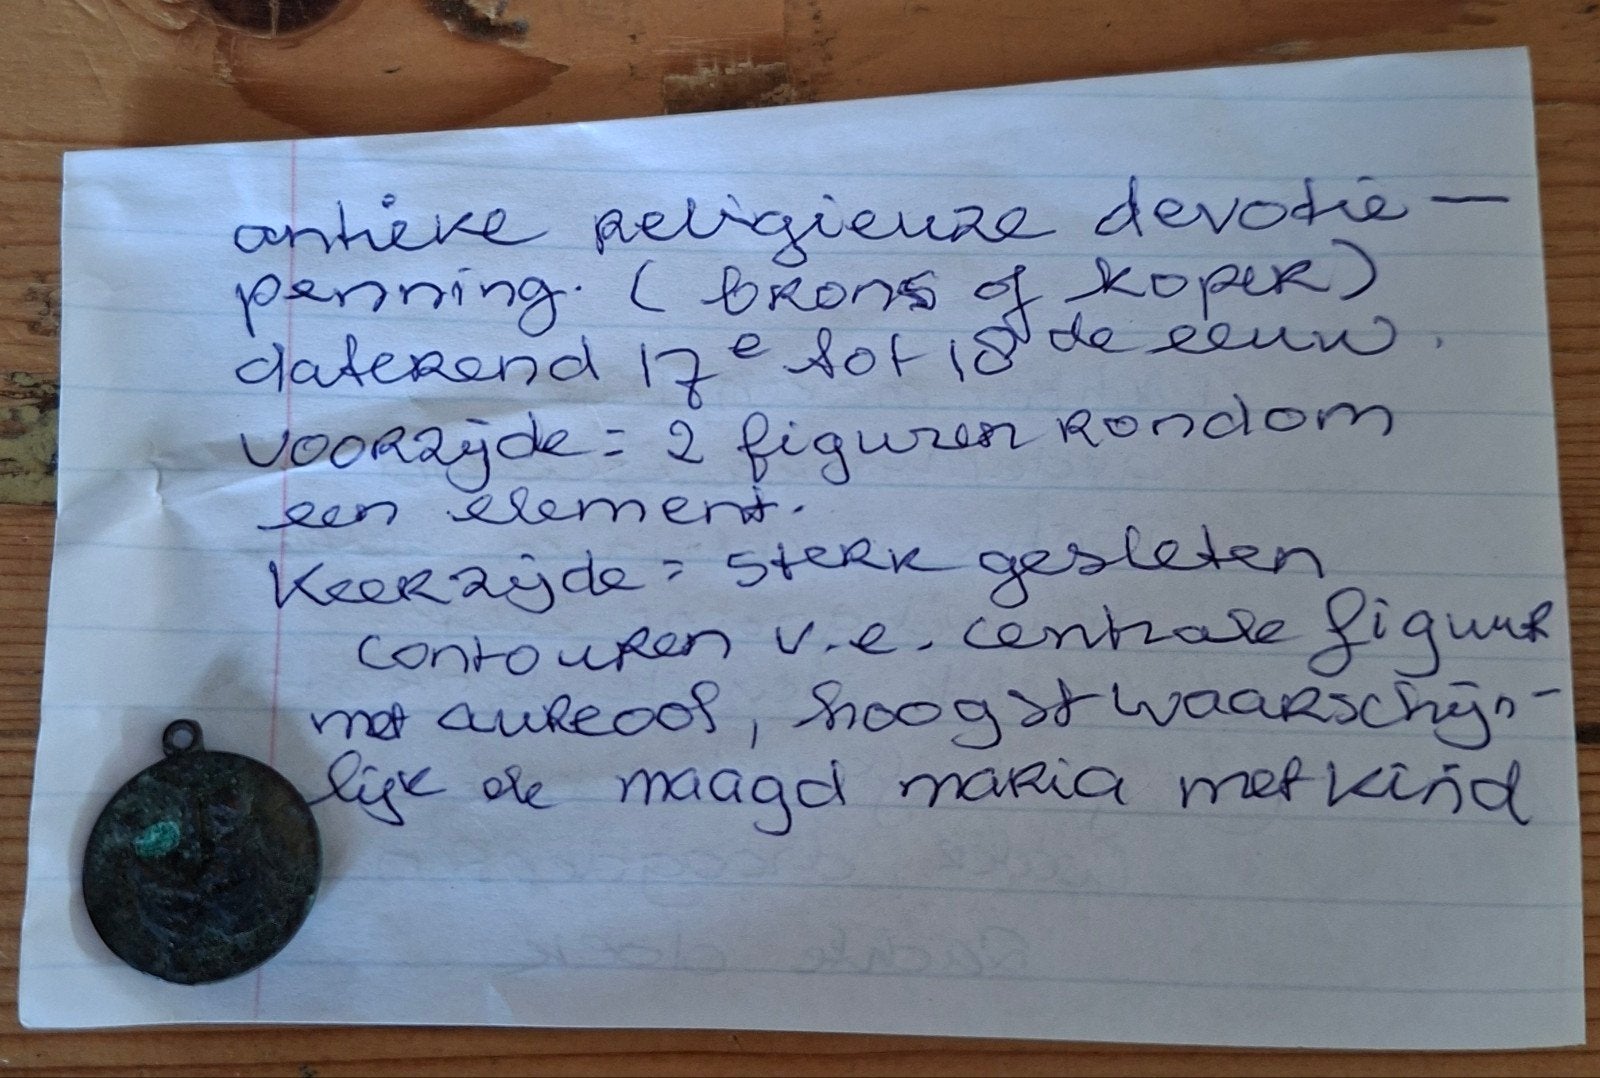 antieke religieuze devotie-
penning. (brons of koper)
daterend 17e tot 18de eeuw.
voorzijde = 2 figuren rondom
een element.
Keerzijde = sterk gesleten
contouren v.e. centrale figuur
met aureool, hoogst waarschijn-
lijk de maagd maria met kind